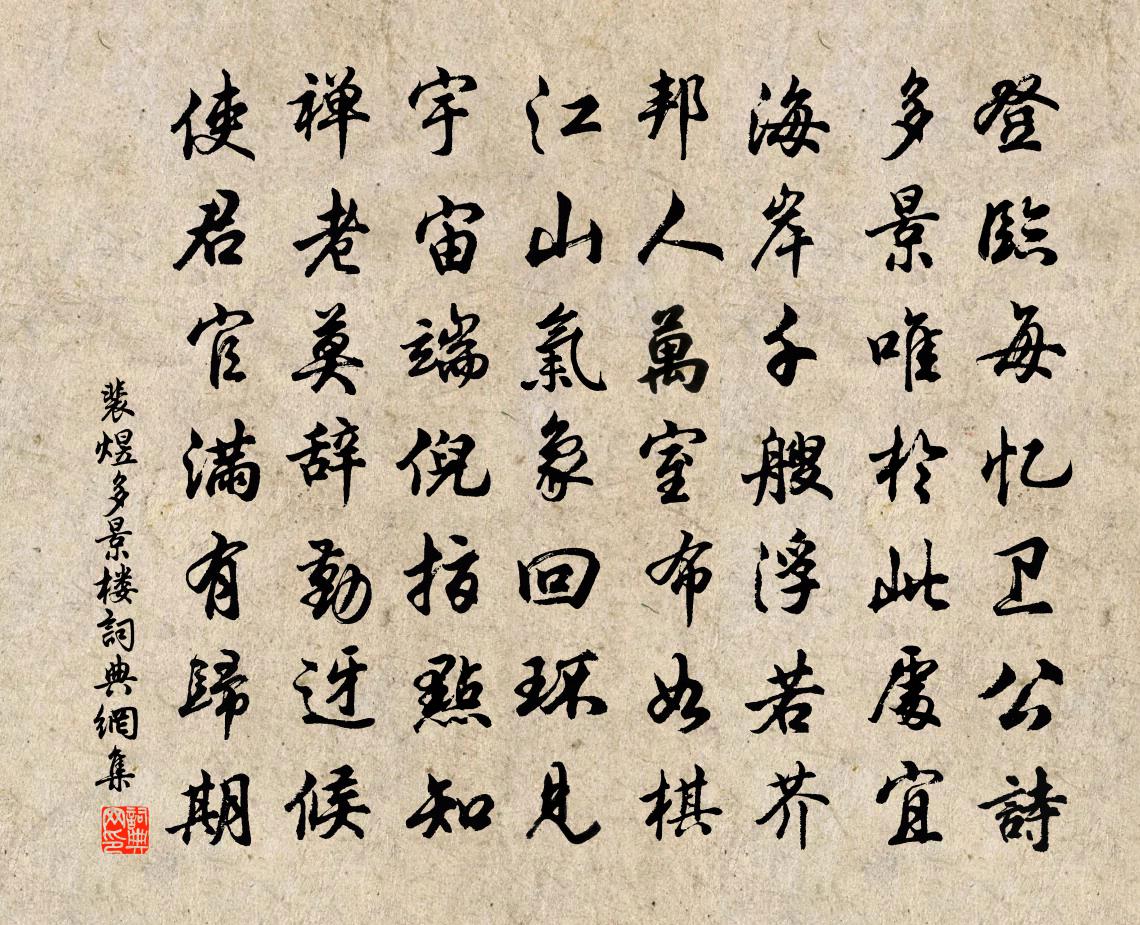 登臨每忆卫公詩
多景唯於此處宜
海岸千艘浮若芥
邦人萬室布如棋
江山氣象回环見
宇宙端倪指點知
禅老莫辞勤迓候
使君官满有歸期
裴煜多景楼詞典網集
詞典网印